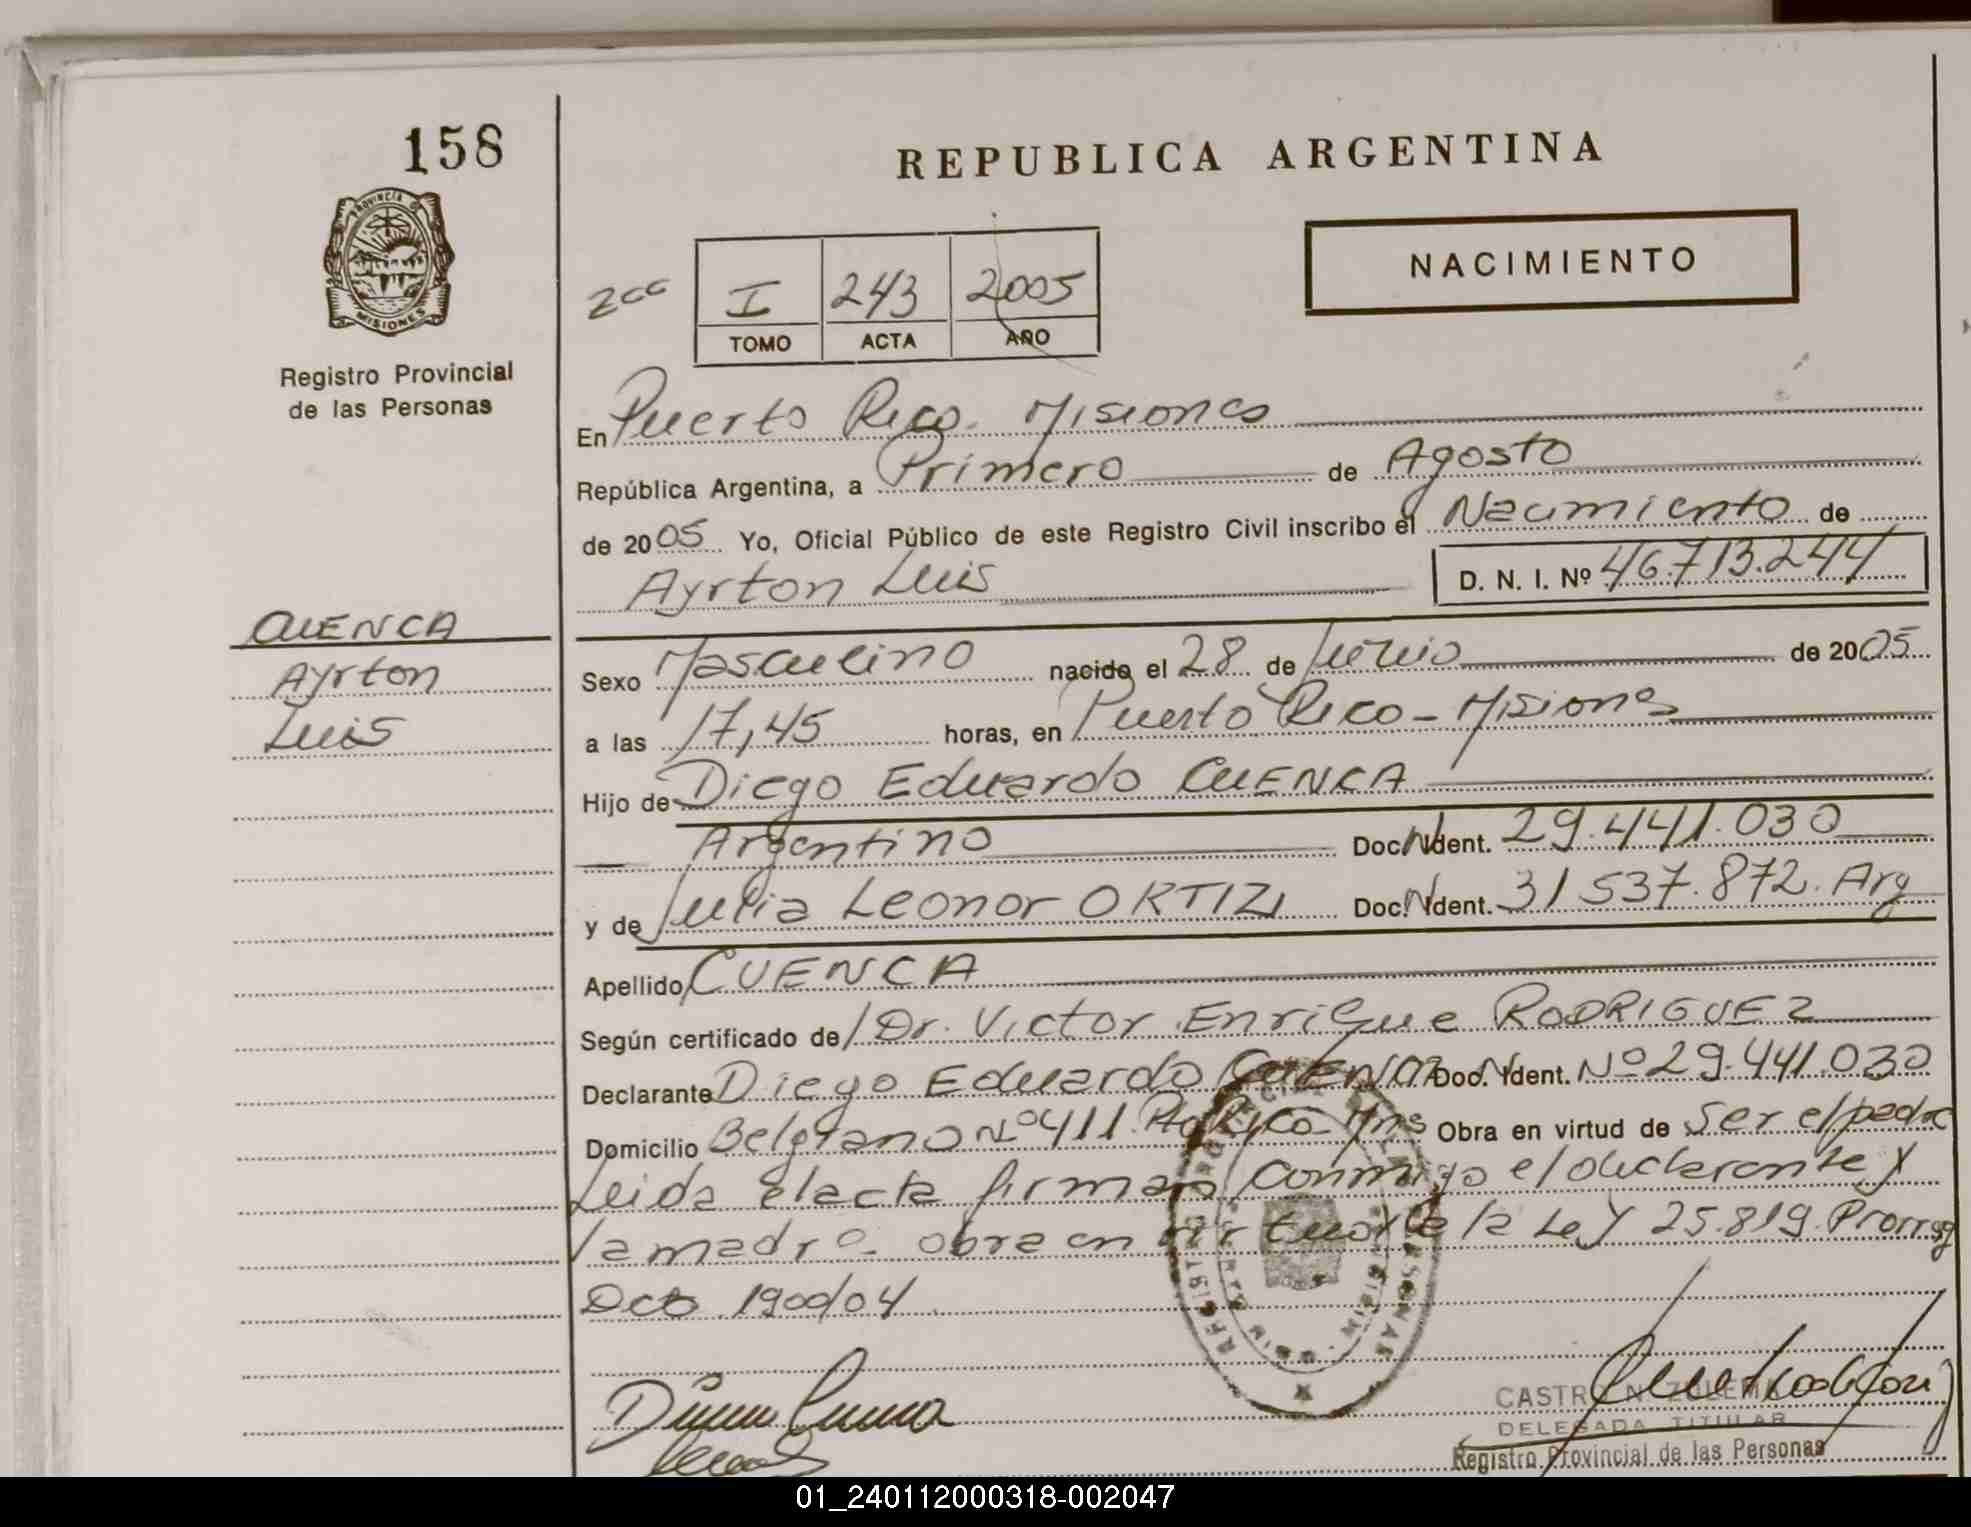 158
REPUBLICA ARGENTINA
PROVINCIA DE
MISIONES
Registro Provincial
de las Personas
NACIMIENTO
I 243 2005
TOMO ACTA AÑO
En Puerto Rico. Misiones
República Argentina, a Primero de Agosto
de 2005 Yo, Oficial Público de este Registro Civil inscribo el Nacimiento de
Ayrton Luis D. N. I. Nº 46.713.244
CUENCA
Ayrton
Luis
Sexo Masculino nacido el 28 de Junio de 2005
a las 17,45 horas, en Puerto Rico - Misiones
Hijo de Diego Eduardo CUENCA
Argentino Doc. Ident. 29.441.030
y de Julia Leonor ORTIZ Doc. Ident. 31537.872. Arg
Apellido CUENCA
Según certificado de Dr. Victor Enrique RODRIGUEZ
Declarante Diego Eduardo CUENCA Doc. Ident. Nº 29.441.030
Domicilio Belgrano Nº 411 Pto Rico Mns Obra en virtud de Ser el padre
Leida el acta firman conmigo el declarante y
la madre obra en virtud de la Ley 25.819. Prorrog
Dcto 1900/04
CASTRO N. ZULEMA
DELEGADA TITULAR
Registro Provincial de las Personas
01_240112000318-002047